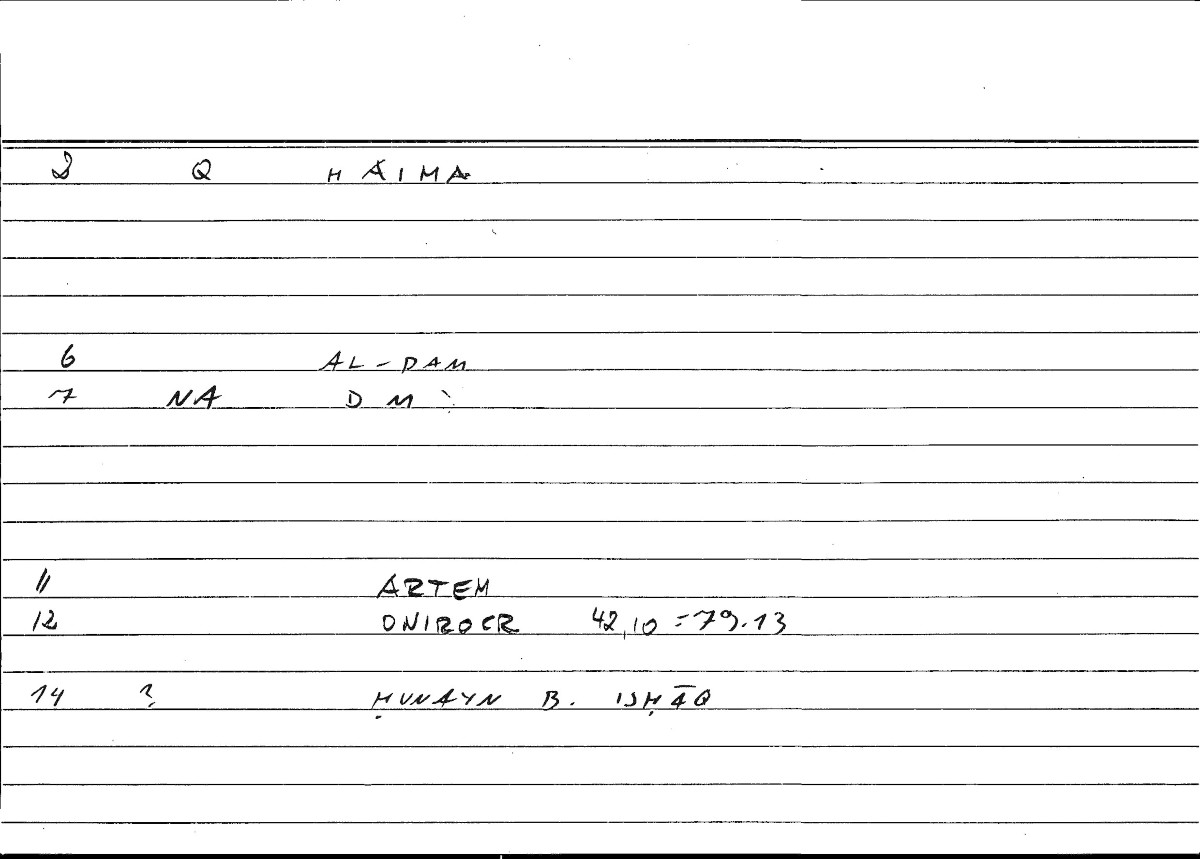 2 Q HAIMA
6 AL-DAM
7 NA DM
11 ARTEM
12 ONIROCR 42,10 = 79.13
14 ? ḤUNAYN B. ISḤĀQ